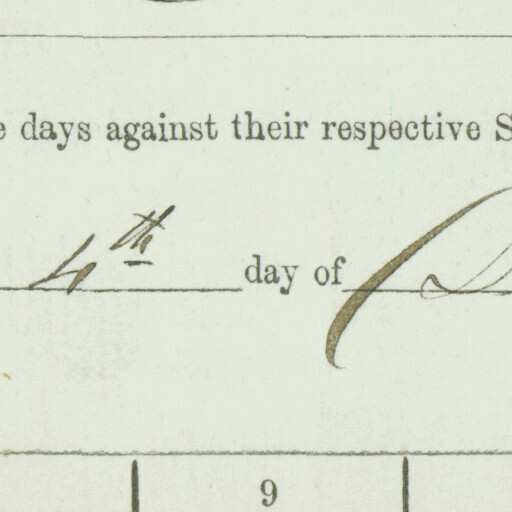 days against their respective
4th day of
9